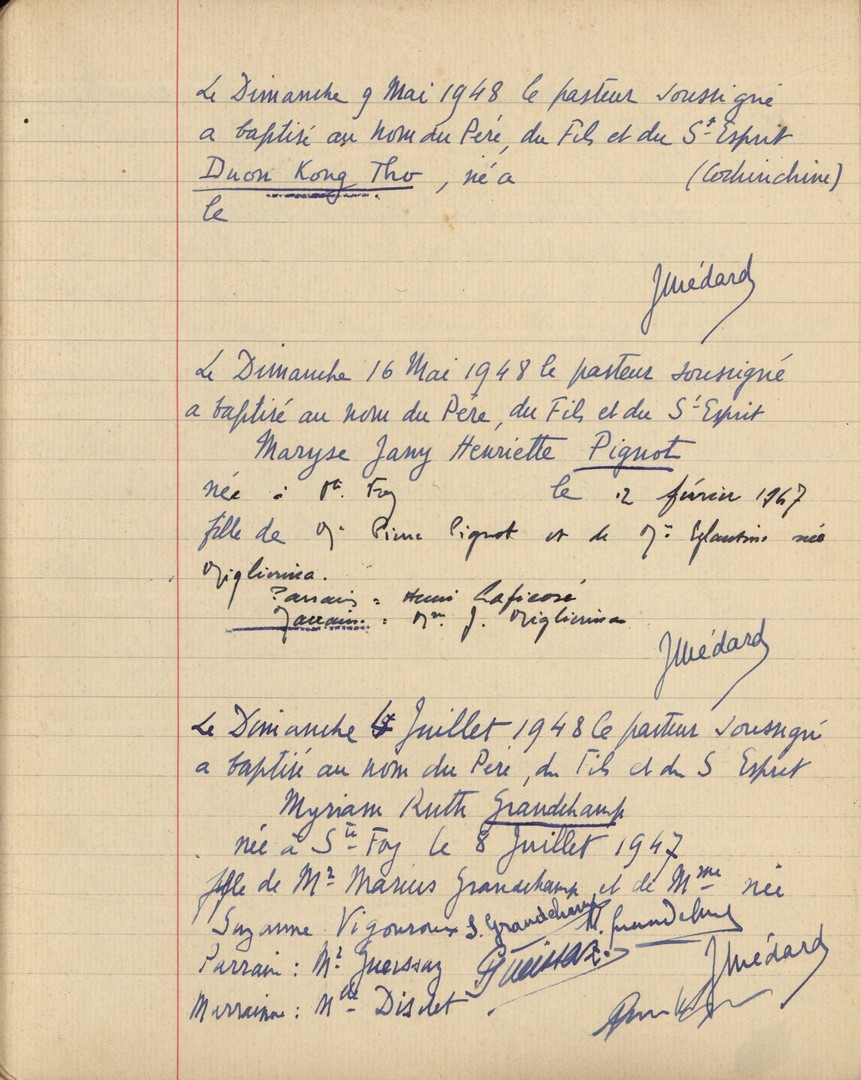 Le Dimanche 9 Mai 1948 le pasteur soussigné
a baptisé au nom du Père, du Fils et du St Esprit
Duon Kong Tho, né a (Cochinchine)
le
JMédard
Le Dimanche 16 Mai 1948 le pasteur soussigné
a baptisé au nom du Père, du Fils et du St Esprit
Maryse Jany Henriette Pignot
née à Ste Foy le 2 février 1947
fille de Mr Pierre Pignot et de Me Eglantine née
Migliorina.
Parrain = Henri
Marraine = Me J. Migliorina
JMédard
Le Dimanche Juillet 1948 le pasteur soussigné
a baptisé au nom du Père, du Fils et du S Esprit
Myriam Ruth Grandchamp
née à Ste Foy le 8 Juillet 1947
fille de Mr Marius Grandchamp et de Mme née
Suzanne Vigouroux S. Grandchamp M. Grandchamp
Parrain : Mr JMédard
Marraine : Mlle